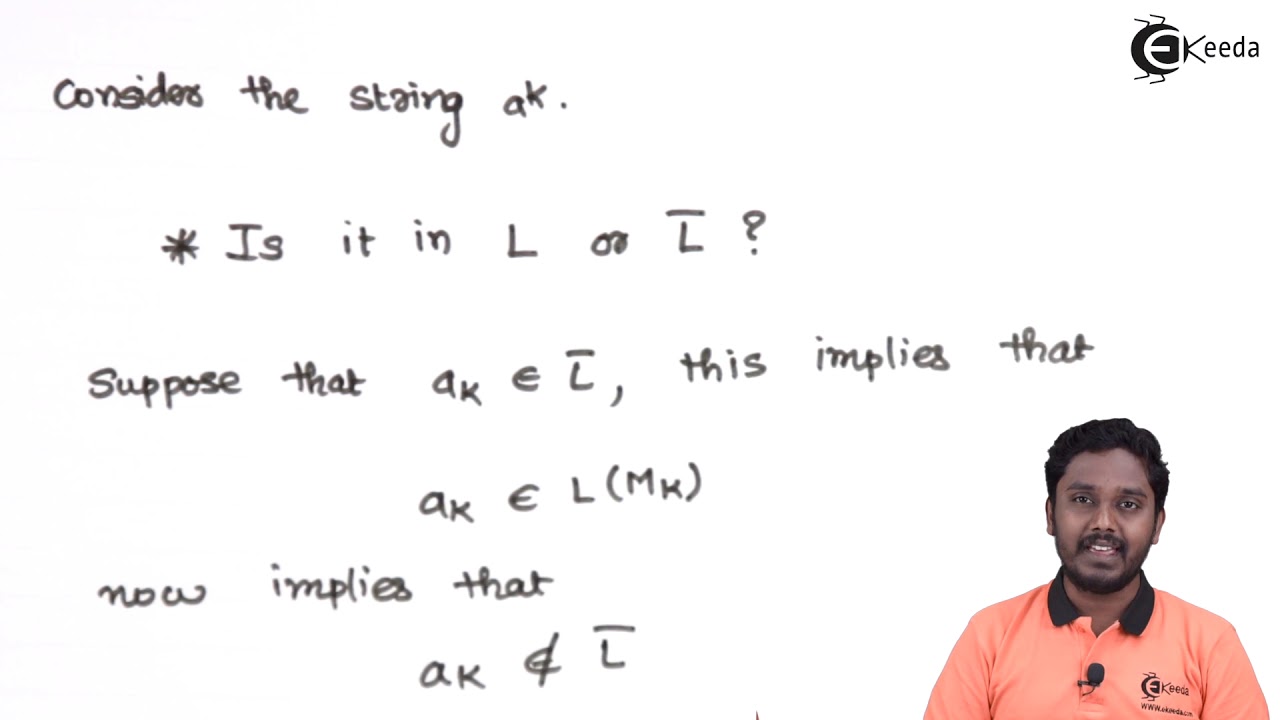 Keeda
Consider the string aᵏ.
* Is it in L or L̅ ?
Suppose that aₖ ∈ L̅, this implies that
aₖ ∈ L(Mₖ)
now implies that
aₖ ∉ L̅
Keeda
www.ekeeda.com